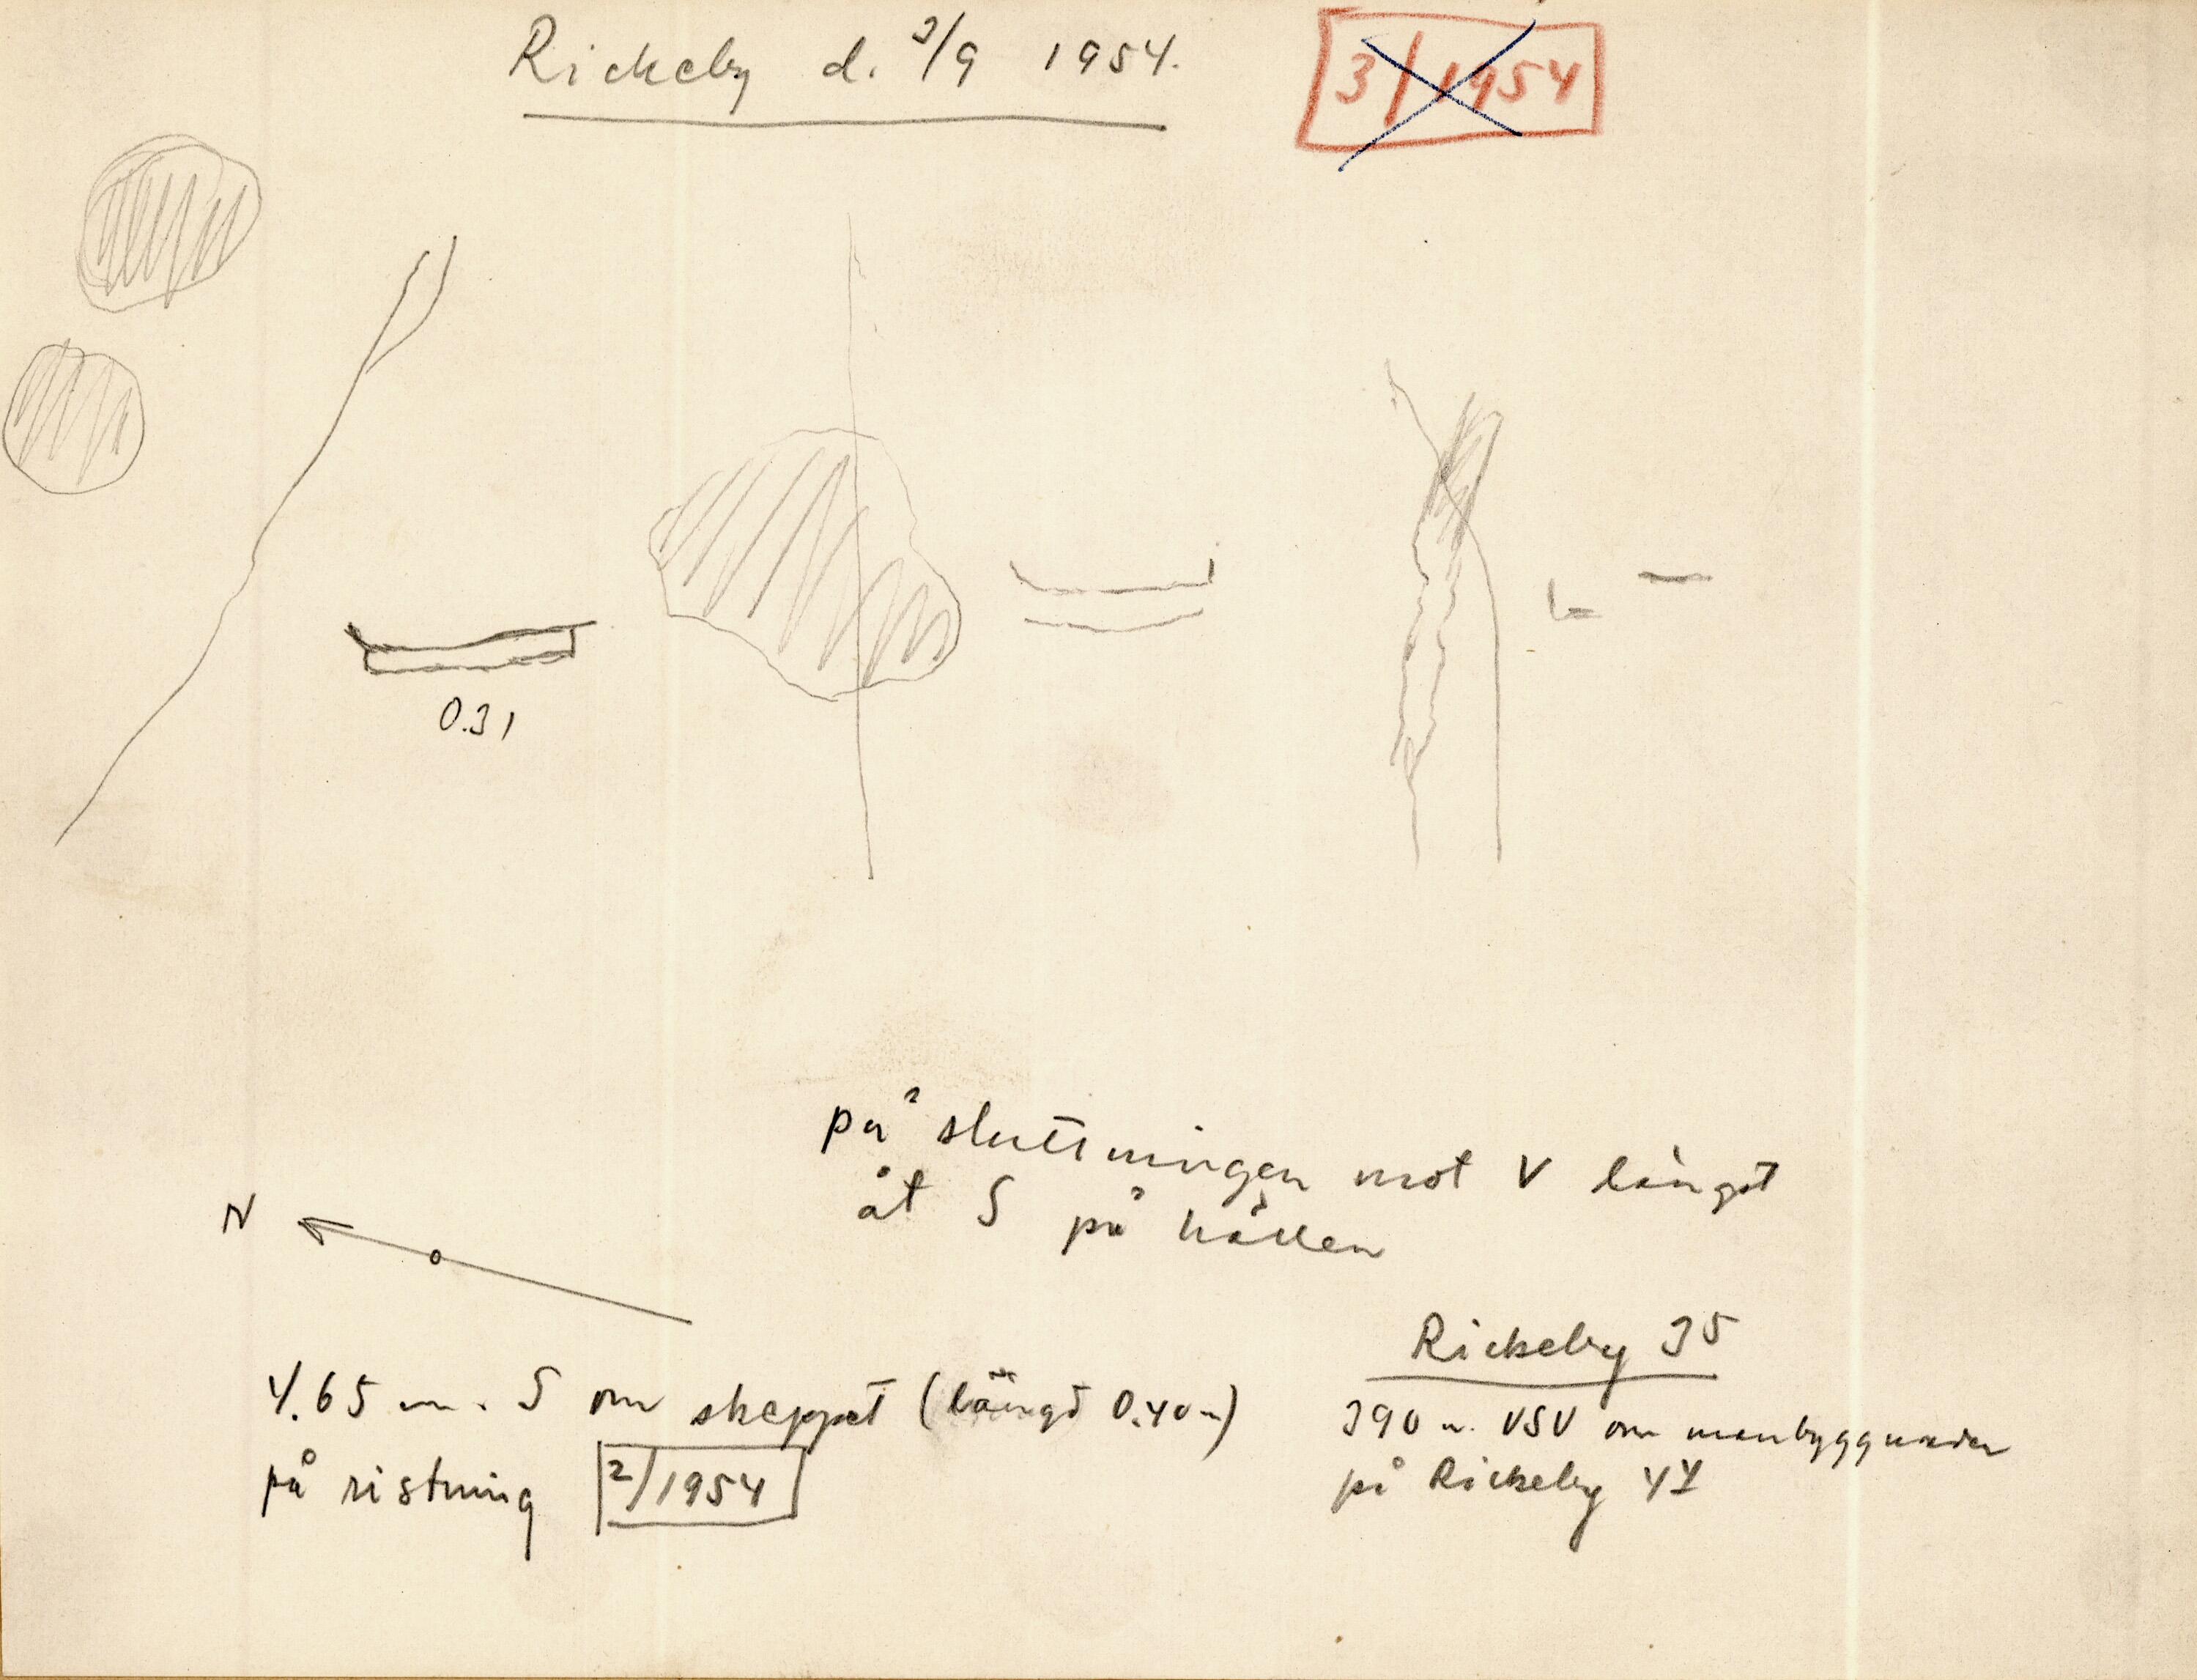 Rickeby d. 3/9 1954.
3/1954
0.31
på sluttningen mot V längst
åt S på hällen
N
4.65 m. S om skeppet (längd 0.40 m)
på ristning 2/1954
Rickeby 35
390 m. VSV om manbyggnaden
på Rickeby